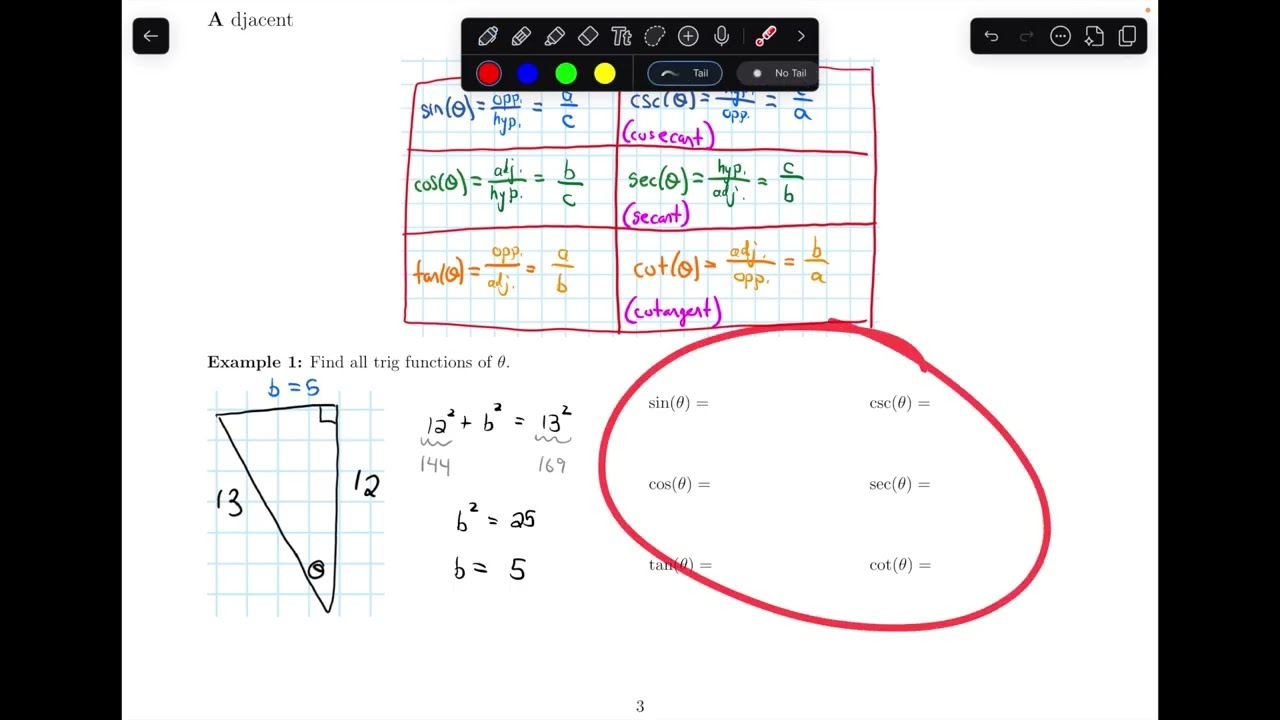 A djacent
Tt
Tail
No Tail
sin(θ) = opp. / hyp. = a / c
csc(θ) = hyp. / opp. = c / a
(cosecant)
cos(θ) = adj. / hyp. = b / c
sec(θ) = hyp. / adj. = c / b
(secant)
tan(θ) = opp. / adj. = a / b
cot(θ) = adj. / opp. = b / a
(cotangent)
Example 1: Find all trig functions of θ.
b = 5
13
12
θ
12² + b² = 13²
144
169
b² = 25
b = 5
sin(θ) =
csc(θ) =
cos(θ) =
sec(θ) =
tan(θ) =
cot(θ) =
3